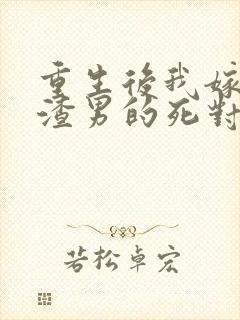 重生後我嫁
渣男的死對
若松卓宏